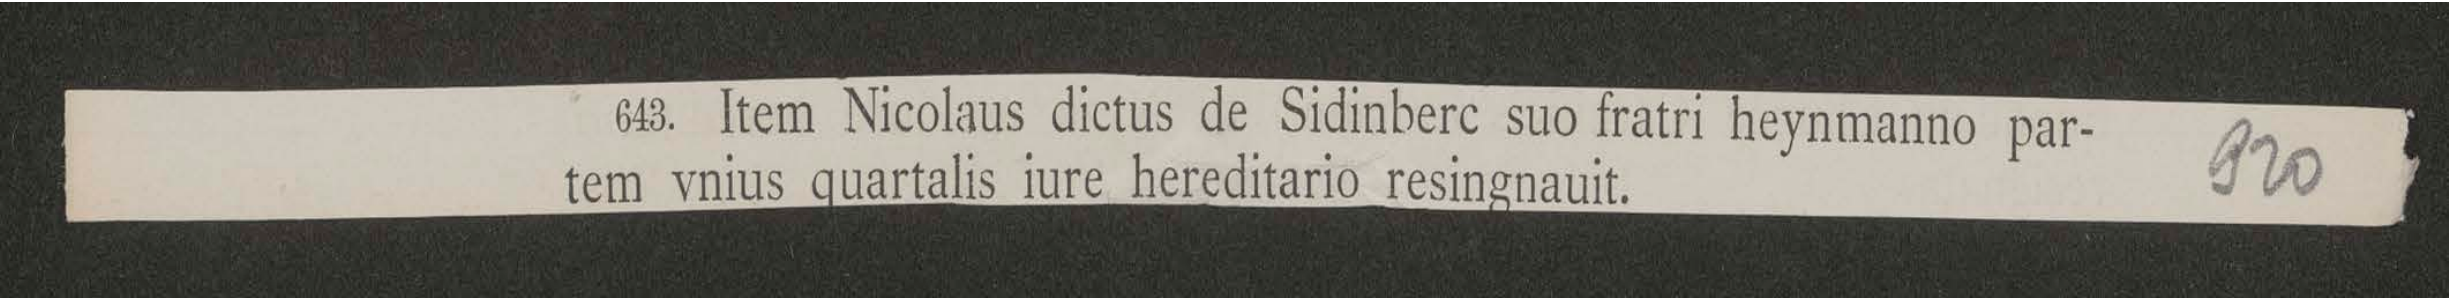 643. Item Nicolaus dictus de Sidinberc suo fratri heynmanno par-
tem vnius quartalis iure hereditario resingnauit.
920